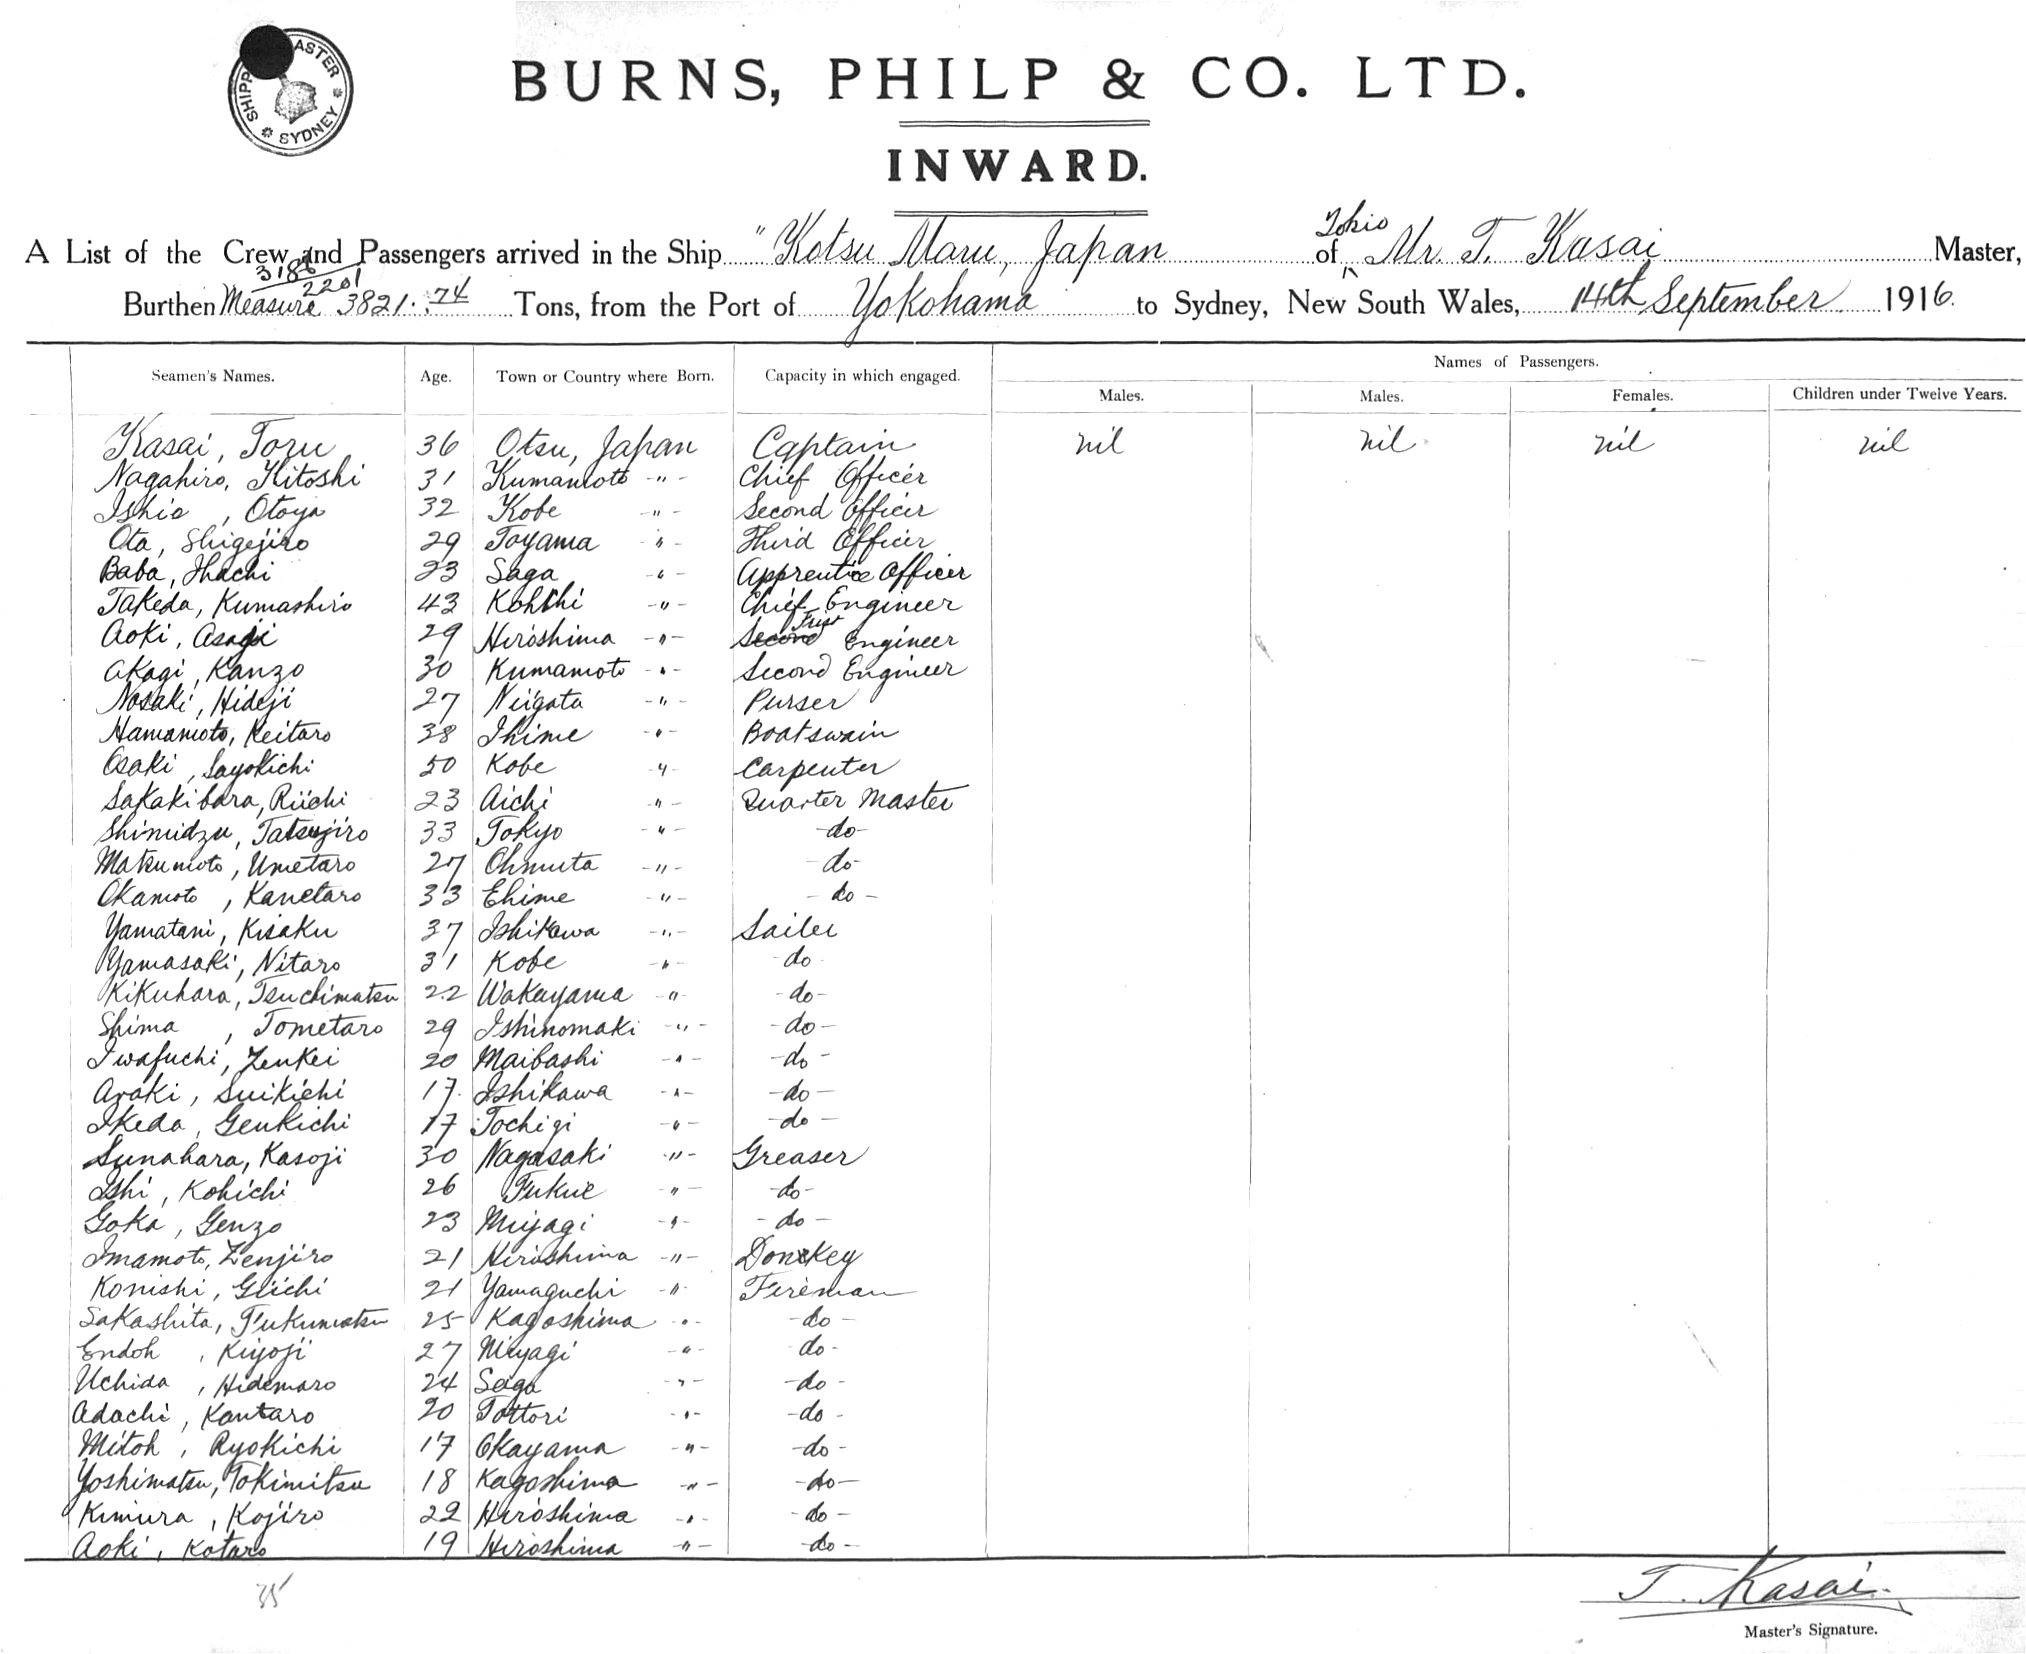 SHIPP ASTER
SYDNEY
BURNS, PHILP & CO. LTD.
INWARD.
A List of the Crew and Passengers arrived in the Ship "Kotsu Maru, Japan of Tokio Mr. T. Kasai Master,
3186
2201
Burthen Measure 3821.74 Tons, from the Port of Yokohama to Sydney, New South Wales, 14th September 1916.
Names of Passengers.
Seamen's Names. Age. Town or Country where Born. Capacity in which engaged. Males. Males. Females. Children under Twelve Years.
Kasai, Toru 36 Otsu, Japan Captain nil nil nil nil
Nagahiro, Hitoshi 31 Kumamoto -"- Chief Officer
Ishio, Otoya 32 Kobe -"- Second Officer
Ota, Shigejiro 29 Toyama -"- Third Officer
Baba, Ihachi 23 Saga -"- Apprentice Officer
Takeda, Kumashiro 43 Kohchi -"- Chief Engineer
Aoki, Asagi 29 Hiroshima -"- Second First Engineer
Akagi, Kanzo 30 Kumamoto -"- Second Engineer
Nosaki, Hideji 27 Niigata -"- Purser
Hamamoto, Keitaro 38 Ihime -"- Boatswain
Osaki, Sayokichi 50 Kobe -"- Carpenter
Sakakibara, Riichi 23 Aichi -"- Quarter Master
Shimidzu, Tatsujiro 33 Tokyo -"- -do-
Matsumoto, Umetaro 27 Ohmuta -"- -do-
Okamoto, Kanetaro 33 Ehime -"- -do-
Yamatani, Kisaku 37 Ishikawa -"- Sailer
Yamasaki, Nitaro 31 Kobe -"- -do-
Kikuhara, Tsuchimatsu 22 Wakayama -"- -do-
Shima, Tometaro 29 Ishinomaki -"- -do-
Iwafuchi, Zenkei 20 Maibashi -"- -do-
Araki, Suikichi 17 Ishikawa -"- -do-
Ikeda, Genkichi 17 Tochigi -"- -do-
Sunahara, Kasoji 30 Nagasaki -"- Greaser
Ishi, Kohichi 26 Fukue -"- -do-
Goka, Genzo 23 Miyagi -"- -do-
Imamoto, Zenjiro 21 Hiroshima -"- Donkey
Konishi, Giichi 21 Yamaguchi -"- Fireman
Sakashita, Fukumatsu 25 Kagoshima -"- -do-
Endoh, Kiyoji 27 Miyagi -"- -do-
Uchida, Hidemaro 24 Saga -"- -do-
Adachi, Kantaro 20 Tottori -"- -do-
Mitoh, Ryokichi 17 Okayama -"- -do-
Yoshimatsu, Tokimitsu 18 Kagoshima -"- -do-
Kimura, Kojiro 22 Hiroshima -"- -do-
Aoki, Kotaro 19 Hiroshima -"- -do-
35
T. Kasai.
Master's Signature.